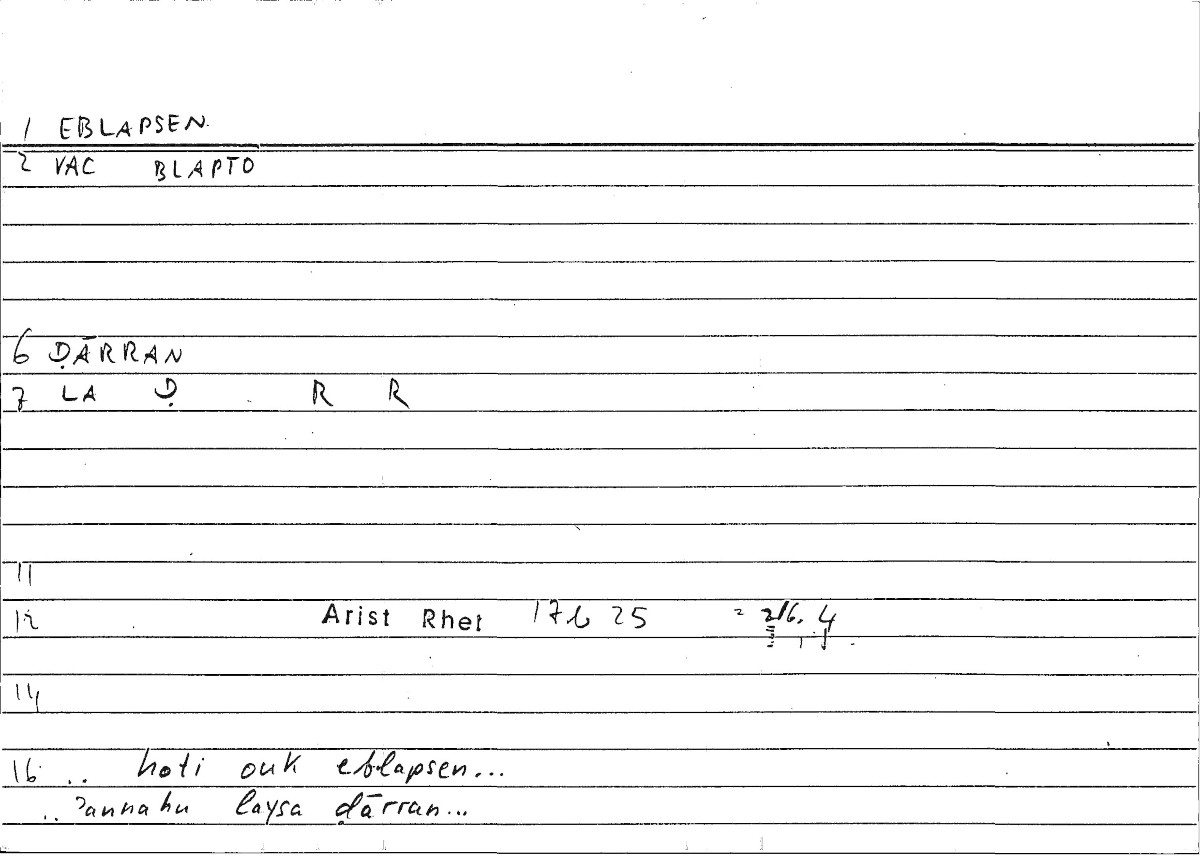 1 EBLAPSEN
2 VAC BLAPTO
6 ḌĀRRAN
7 LA Ḍ R R
11
12 Arist Rhet 17b 25 = 216. 4
14
16 .. hoti ouk eblapsen...
.. ʾannahu laysa ḍārran...